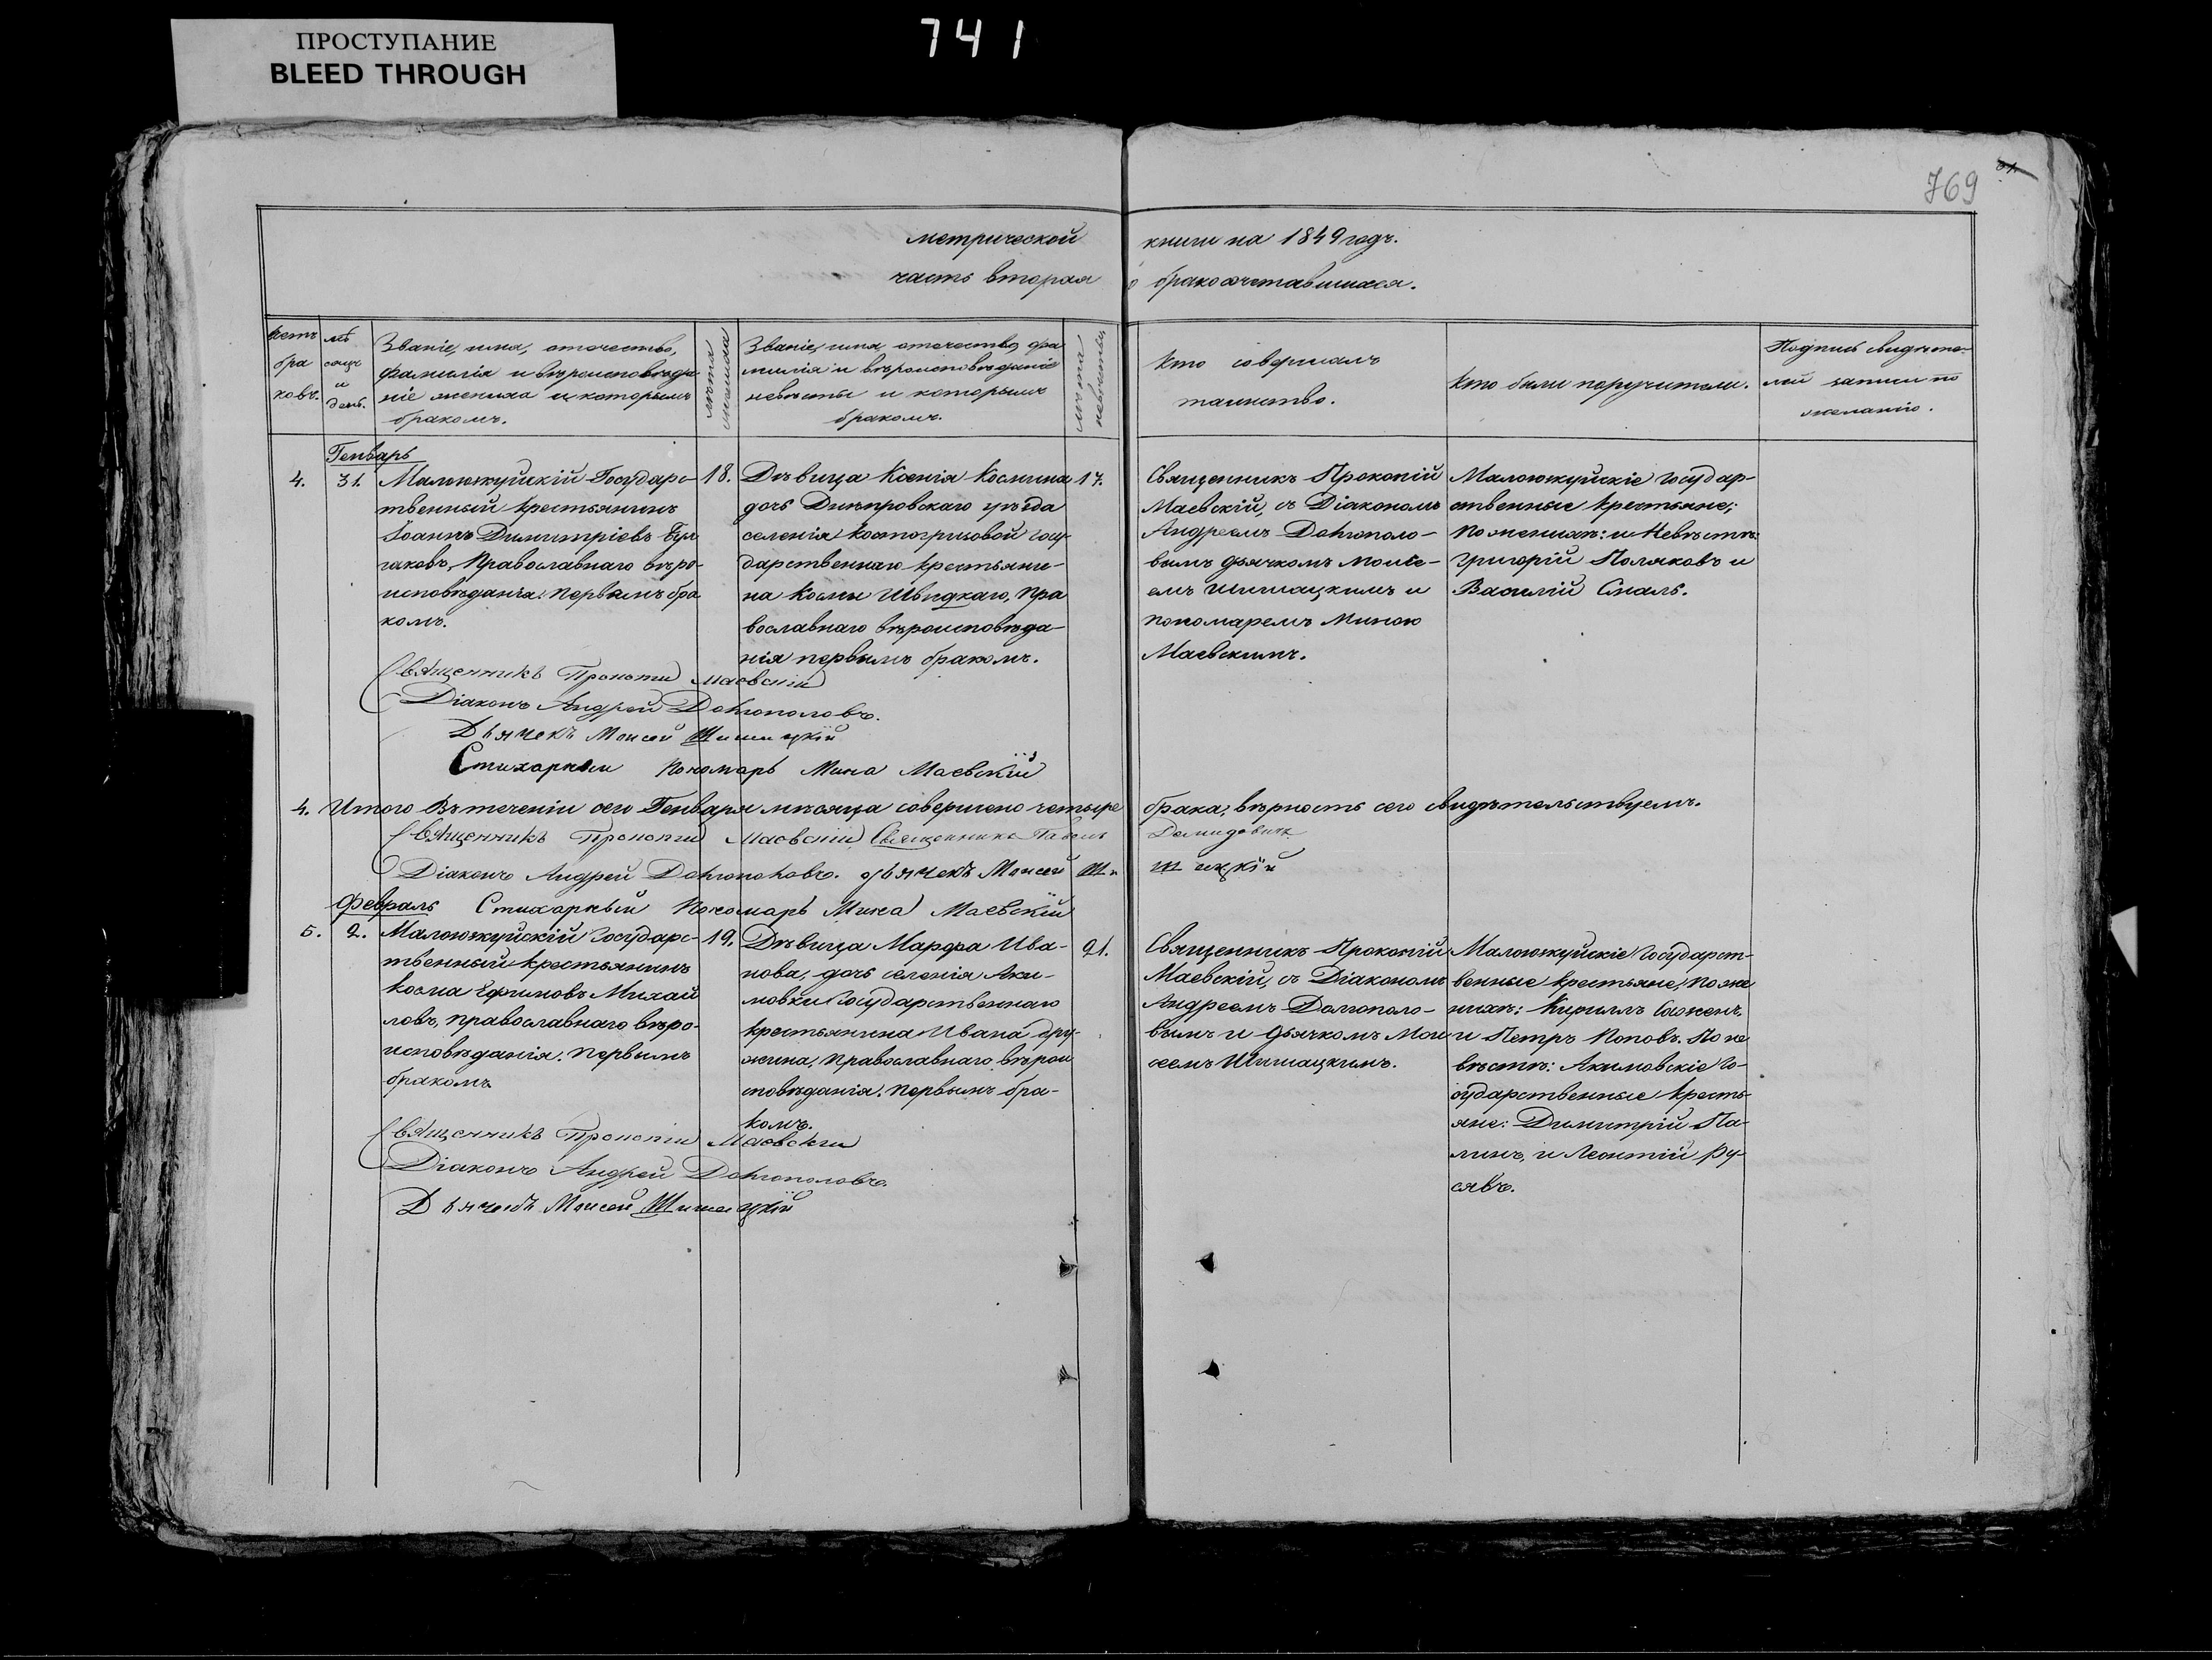 ПРОСТУПАНИЕ
BLEED THROUGH
741
769
метрической книги на 1849 годъ.
часть вторая о бракосочетавшихся.
счетъ
бра
ковъ.
мѣ
сяцъ
и
день.
Званіе, имя, отечество,
фамилія и вѣроисповѣда
ніе жениха и которымъ
бракомъ.
лѣта
жениха
Званіе, имя, отечество, фа
милія и вѣроисповѣданіе
невѣсты и которымъ
бракомъ.
лѣта
невѣсты
Кто совершалъ
таинство.
Кто были поручители.
Подпись свидѣте-
лей записи по
желанію.
Генварь
4.
31.
Малоюжкуйскій Государс-
твенный крестьянинъ
Іоаннъ Димитріевъ Бул
гаковъ, Православнаго вѣро-
исповѣданія: первымъ бра
комъ.
18.
Дѣвица Ксенія Космина
дочь Днѣпровскаго уѣзда
селенія Костогризовой госу
дарственнаго крестьяни-
на Космы Швидкаго, Пра
вославнаго вѣроисповѣда-
нія первымъ бракомъ.
17.
Священникъ Прокопій
Маевскій, съ Діакономъ
Андреемъ Долгополо-
вымъ дьячкомъ Моисе-
емъ Шишацкимъ и
пономаремъ Миною
Маевскимъ.
Малоюжкуйскіе государ-
ственные крестьяне;
По женихѣ: и Невѣстѣ:
Григорій Поляковъ и
Василій Смаль.
Священникъ Прокопій Маевскій
Діаконъ Андрей Долгополовъ.
Дьячекъ Моисей Шишацкій
Стихарный Пономарь Мина Маевскій
4. Итого Въ теченіи сего Генваря мѣсяца совершено четыре брака; вѣрность сего свидѣтельствуемъ.
Священникъ Прокопій Маевскій Священникъ Павелъ Демидовичъ
Діаконъ Андрей Долгополовъ. дьячекъ Моисей Шишацкій
Февраль
Стихарный Пономарь Мина Маевскій
5.
2.
Малоюжкуйскій Государс-
твенный крестьянинъ
Косма Ефимовъ Михай
ловъ, православнаго вѣро-
исповѣданія: первымъ
бракомъ
19.
Дѣвица Марфа Ива-
нова, дочь селенія Аки-
мовки Государственнаго
крестьянина Ивана Дру-
жина, Православнаго вѣрои
сповѣданія: первымъ бра-
комъ.
21.
Священникъ Прокопій
Маевскій, съ Діакономъ
Андреемъ Долгополо-
вымъ и дьячкомъ Мои
сеемъ Шишацкимъ.
Малоюжкуйскіе Государст-
венные крестьяне, По же
нихѣ: Кириллъ
и Петръ Поповъ. По не
вѣстѣ: Акимовскіе Го-
сударственные кресть-
яне: Димитрій Па-
линъ, и Леонтій Ру-
севъ.
Священникъ Прокопій Маевскій
Діаконъ Андрей Долгополовъ.
Дьячекъ Моисей Шишацкій